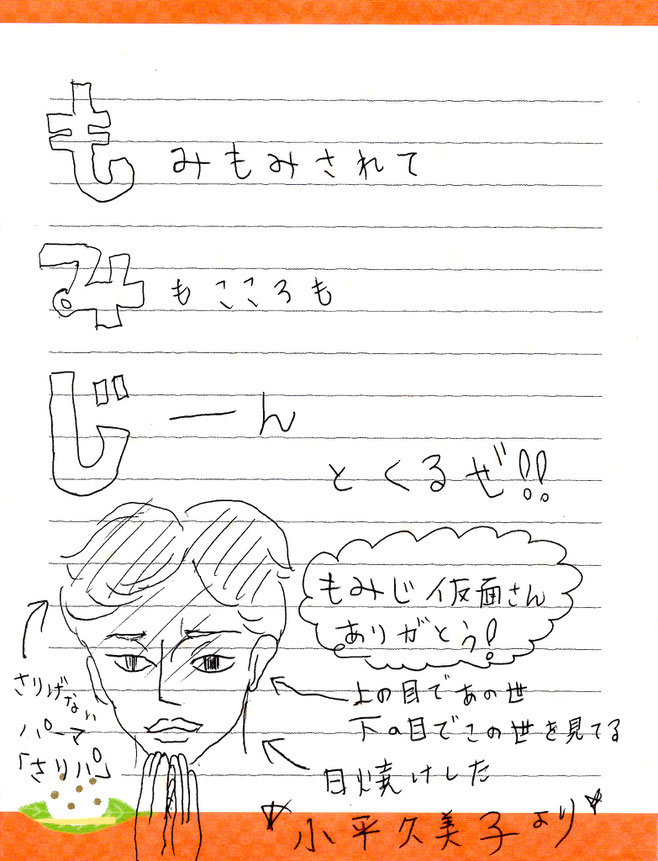 もみもみされて
みもこころも
じーん
とくるぜ!!
もみじ仮面さん
ありがとう!
さりげない
パーマ
「さりパ」
上の目であの世
下の目でこの世を見てる
日焼けした
小平久美子より